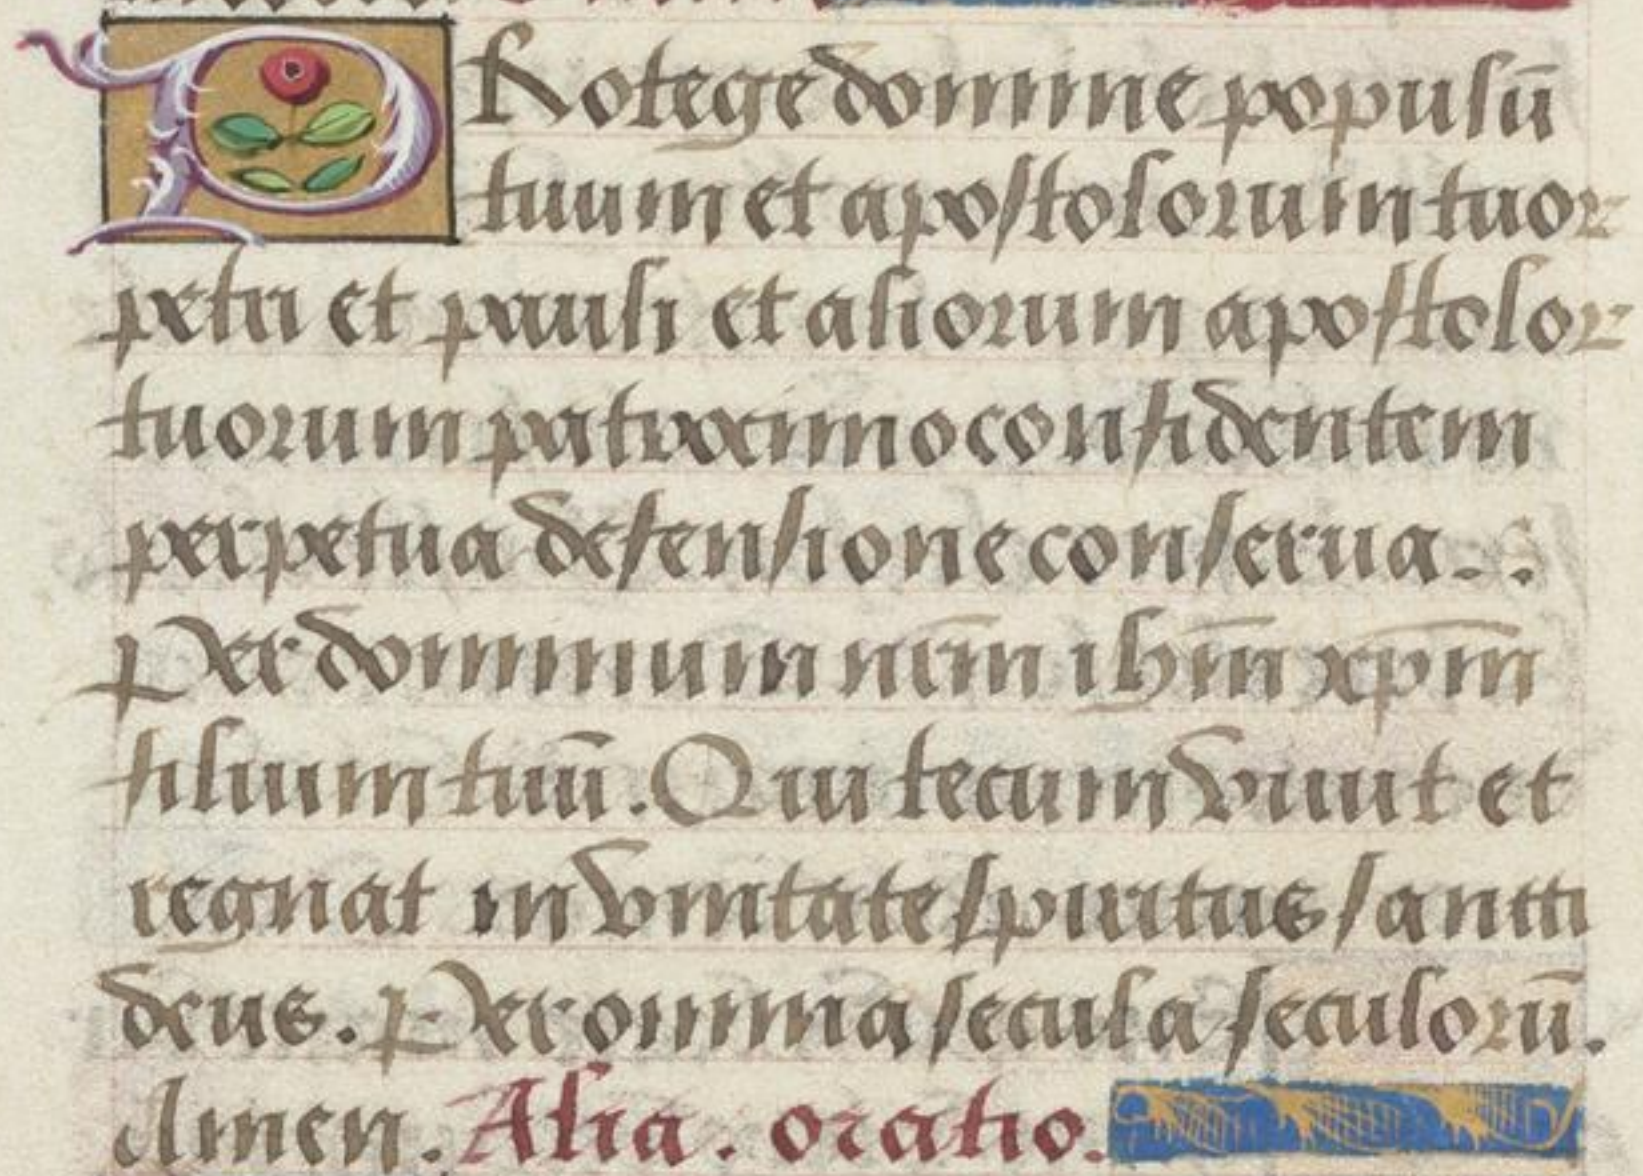 PRotege domine populū
tuum et apostolorum tuoꝝ
petri et pauli et aliorum apostoloꝝ
tuorum patrocinio confidentem
perpetua defensione conserua. .
Per dominum nr̄m ihm̄ xpm̄
filium tuū. Qui tecum viuit et
regnat in vnitate spiritus santti
deus. Per omnia secula seculorū.
Amen. Alia. oratio.